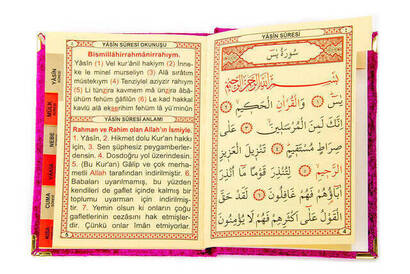 YÂSÎN SÛRESİ OKUNUŞU
Bismillâhirrahmânirrahıym.
Yâsîn (1) Vel kur'ânil hakiym (2) İnne-
ke le minel murseliyn (3) Alâ sırâtım
müstekiym (4) Tenziylel aziyzir rahıym
(5) Li tünzira kavmem mâ ünzira âbâ-
ühüm fehüm gâfilûn (6) Le kad hakkal
kavlü alâ ekserihim fehüm lâ yü'minûn
YÂSÎN SÛRESİ ANLAMI
Rahman ve Rahim olan Allah'ın İsmiyle.
1. Yâsîn, 2. Hikmet dolu Kur'an hakkı
için, 3. Sen şüphesiz peygamberler-
densin. 4. Dosdoğru yol üzerindesin.
5. (Bu Kur'an) Gâlip ve çok merha-
metli Allah tarafından indirilmiştir. 6.
Babaları uyarılmamış, bu yüzden
kendileri de gaflet içinde kalmış bir
toplumu uyarman için indirilmiş-
tir. 7. Yemin olsun ki onların çoğu
gafletlerinin cezasını hak etmişler-
dir. Çünkü onlar İman etmiyorlar.
YÂSÎN
MÜLK
NEBE
VAKIA
CUMA
KISA
YÂSÎN SÛRESİ
سُورَةُ يٰسٓ
بِسْمِ اللّٰهِ الرَّحْمٰنِ الرَّحِيمِ
يٰسٓ ﴿١﴾ وَالْقُرْاٰنِ الْحَكِيمِ ﴿٢﴾
اِنَّكَ لَمِنَ الْمُرْسَلِينَ ﴿٣﴾ عَلٰى
صِرَاطٍ مُسْتَقِيمٍ ﴿٤﴾ تَنْزِيلَ الْعَزِيزِ
الرَّحِيمِ ﴿٥﴾ لِتُنْذِرَ قَوْمًا مَٓا اُنْذِرَ
اٰبَٓاؤُهُمْ فَهُمْ غَافِلُونَ ﴿٦﴾ لَقَدْ حَقَّ
الْقَوْلُ عَلٰٓى اَكْثَرِهِمْ فَهُمْ لَا يُؤْمِنُونَ